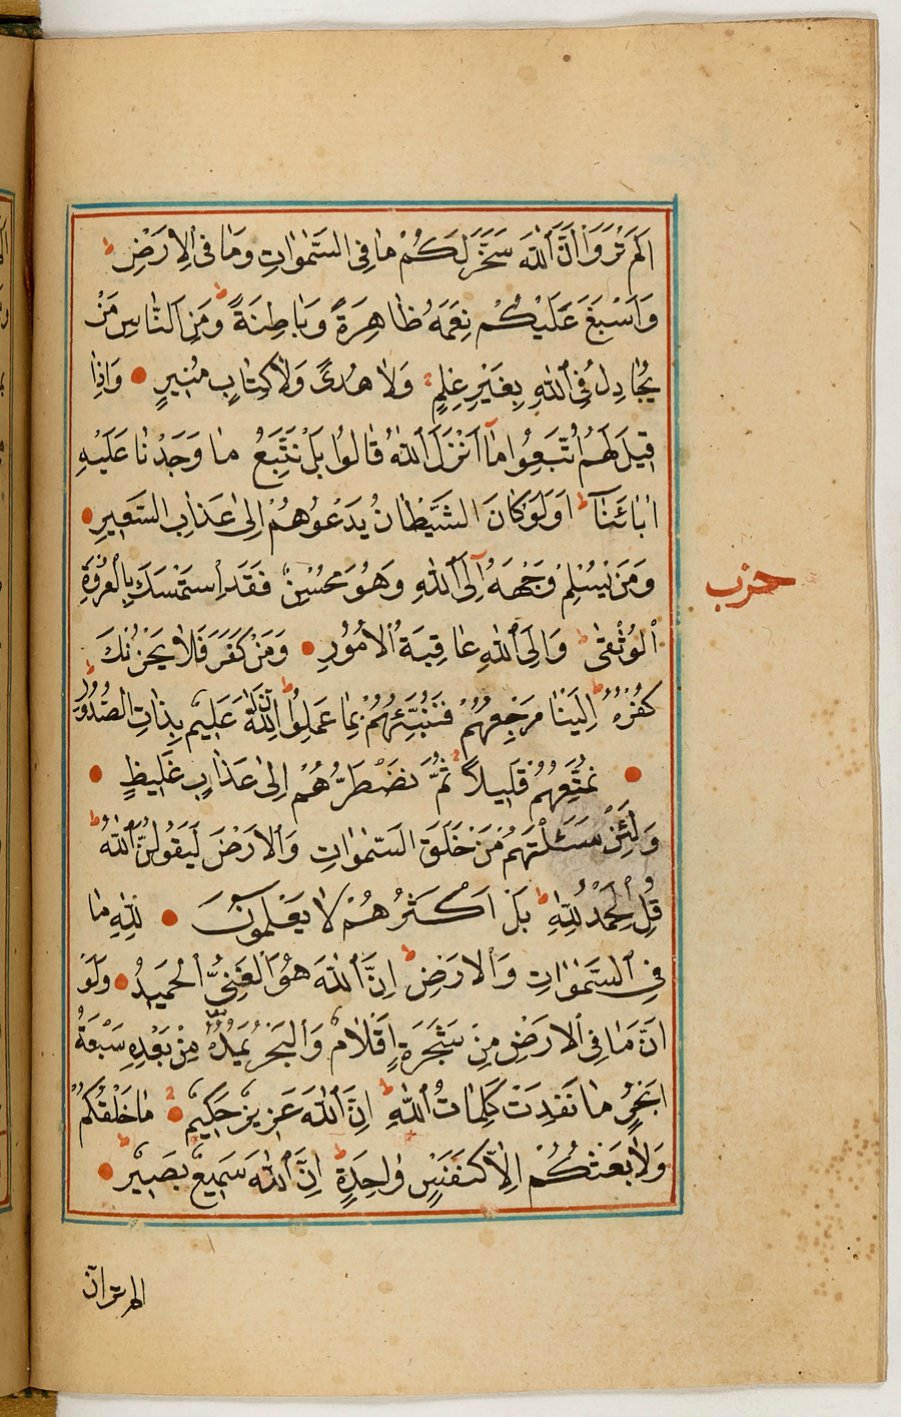 اَلَمْ تَرَوْا اَنَّ اللّٰهَ سَخَّرَ لَكُمْ مَا فِى السَّمٰوَاتِ وَمَا فِى الْاَرْضِ ط
وَاَسْبَغَ عَلَيْكُمْ نِعَمَهُ ظَاهِرَةً وَبَاطِنَةً ط وَمِنَ النَّاسِ مَنْ
يُجَادِلُ فِى اللّٰهِ بِغَيْرِ عِلْمٍ وَلَا هُدًى وَلَا كِتَابٍ مُنِيرٍ وَاِذَا
قِيلَ لَهُمُ اتَّبِعُوا مَا اَنْزَلَ اللّٰهُ قَالُوا بَلْ نَتَّبِعُ مَا وَجَدْنَا عَلَيْهِ
اٰبَائَنَا ط اَوَلَوْ كَانَ الشَّيْطَانُ يَدْعُوهُمْ اِلٰى عَذَابِ السَّعِيرِ
وَمَنْ يُسْلِمْ وَجْهَهُ اِلَى اللّٰهِ وَهُوَ مُحْسِنٌ فَقَدِ اسْتَمْسَكَ بِالْعُرْوَةِ
حزب
الْوُثْقٰى ط وَاِلَى اللّٰهِ عَاقِبَةُ الْاُمُورِ وَمَنْ كَفَرَ فَلَا يَحْزُنْكَ
كُفْرُهُ ط اِلَيْنَا مَرْجِعُهُمْ فَنُنَبِّئُهُمْ بِمَا عَمِلُوا ط اِنَّ اللّٰهَ عَلِيمٌ بِذَاتِ الصُّدُورِ
نُمَتِّعُهُمْ قَلِيلًا ثُمَّ نَضْطَرُّهُمْ اِلٰى عَذَابٍ غَلِيظٍ
وَلَئِنْ سَئَلْتَهُمْ مَنْ خَلَقَ السَّمٰوَاتِ وَالْاَرْضَ لَيَقُولُنَّ اللّٰهُ ط
قُلِ الْحَمْدُ لِلّٰهِ ط بَلْ اَكْثَرُهُمْ لَا يَعْلَمُونَ لِلّٰهِ مَا
فِى السَّمٰوَاتِ وَالْاَرْضِ ط اِنَّ اللّٰهَ هُوَ الْغَنِىُّ الْحَمِيدُ وَلَوْ
اَنَّ مَا فِى الْاَرْضِ مِنْ شَجَرَةٍ اَقْلَامٌ وَالْبَحْرُ يَمُدُّهُ مِنْ بَعْدِهِ سَبْعَةُ
اَبْحُرٍ مَا نَفِدَتْ كَلِمَاتُ اللّٰهِ ط اِنَّ اللّٰهَ عَزِيزٌ حَكِيمٌ مَا خَلْقُكُمْ
وَلَا بَعْثُكُمْ اِلَّا كَنَفْسٍ وَاحِدَةٍ ط اِنَّ اللّٰهَ سَمِيعٌ بَصِيرٌ
الم تر ان